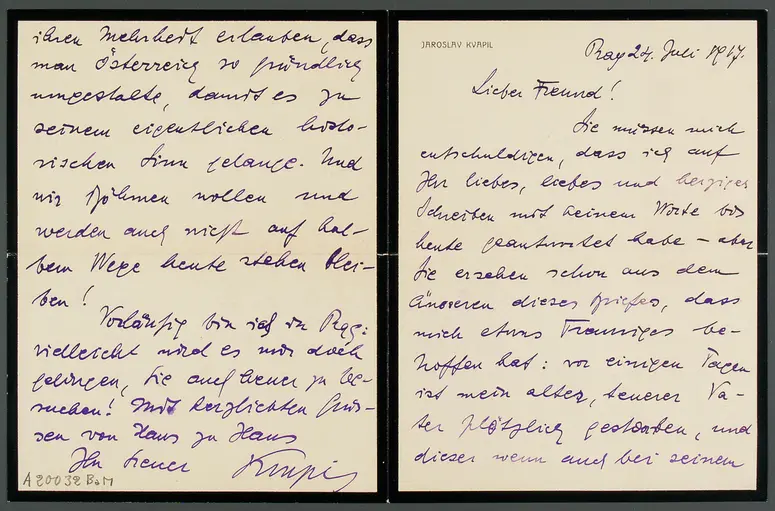 JAROSLAV KVAPIL
Prag 24. Juli 1917.
Lieber Freund!
Sie müssen mich
entschuldigen, dass ich auf
Ihr liebes, liebes und herziges
Schreiben mit keinem Worte bis
heute geantwortet habe – aber
Sie ersehen schon aus dem
Äusseren dieses Briefes, dass
mich etwas Trauriges be-
troffen hat: vor einigen Tagen
ist mein alter, teuerer Va-
ter plötzlich gestorben, und
dieser wenn auch bei seinem
ihren Mehrheit erlauben, dass
man Österreich so gründlich
umgestalte, damit es zu
seinem eigentlichen histo-
rischen Sinn gelange. Und
wir Böhmen wollen und
werden auch nicht auf hal-
bem Wege heute stehen blei-
ben!
Vorläufig bin ich in Prag:
vielleicht wird es mir doch
gelingen, Sie auch heuer zu be-
suchen! Mit herzlichsten Grüs-
sen von Haus zu Haus
Ihr treuer Kvapil
A 20032 BaM